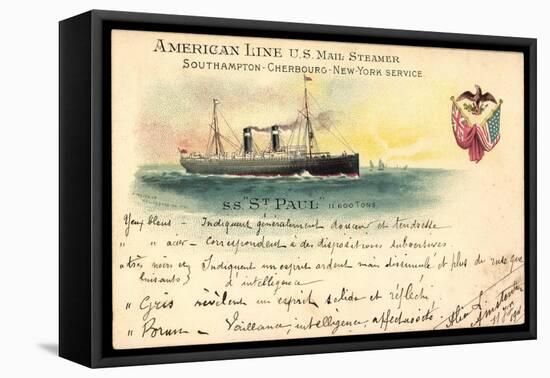 AMERICAN LINE U.S. MAIL STEAMER
SOUTHAMPTON-CHERBOURG-NEW-YORK SERVICE
S.S. "ST PAUL" 11.600 TONS
Yeux bleus - Indiquent généralement douceur et tendresse
" " - Correspondent à des dispositions
" très noirs et Indiquent un esprit ardent mais dissimulé et plus de ruse que
luisants d'intelligence
" Gris révèlent un esprit solide et réfléchi
" Bruns - Vaillance, intelligence,